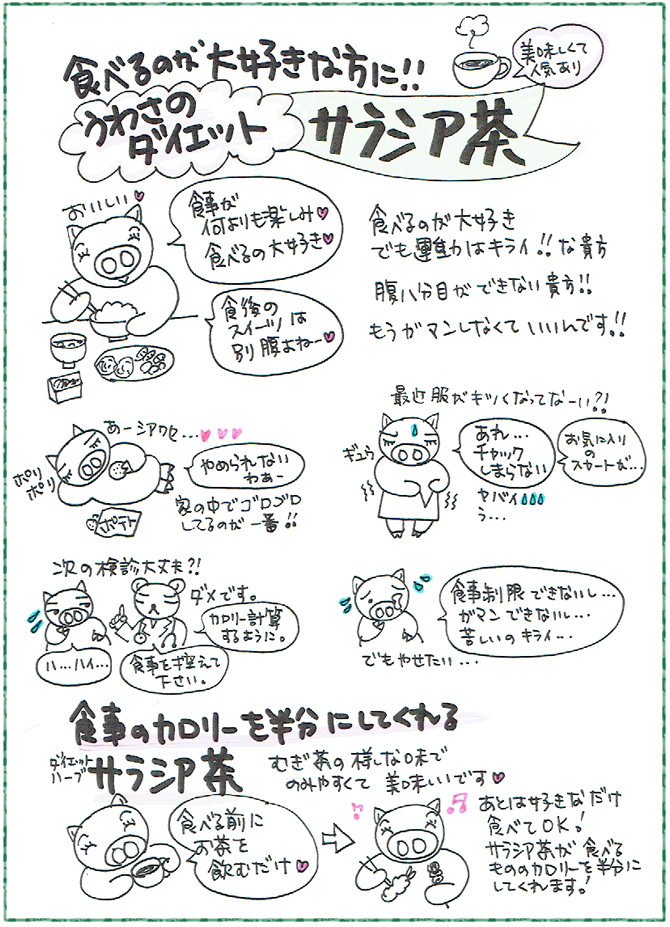 食べるのが大好きな方に!!
美味しくて
人気あり
うわさの
ダイエット
サラシア茶
おいしい♥
食事が
何よりも楽しみ♥
食べるの大好き♥
食後の
スイーツは
別腹よねー♥
食べるのが大好き
でも運動はキライ!!な貴方
腹八分目ができない貴方!!
もうガマンしなくていいんです!!
あーシアワセ...♥♥♥
ポリ
ポリ
やめられない
わぁー
ポテト
家の中でゴロゴロ
してるのが一番!!
最近服がキツくなってなーい?!
ギュウ
あれ...
チャック
しまらない
お気に入り
の
スカートが...
ヤバイ
う...
次の検診大丈夫?!
ハ...ハイ...
ダメです。
カロリー計算
するように。
食事を控えて
下さい。
食事制限できないし...
ガマンできないし...
苦しいのキライ...
でもやせたい...
食事のカロリーを半分にしてくれる
ダイエット
ハーブ
サラシア茶
むぎ茶の様な味で
のみやすくて美味しいです♥
食べる前に
お茶を
飲むだけ♥
あとは好きなだけ
食べてOK!
サラシア茶が食べる
もののカロリーを半分に
してくれます!